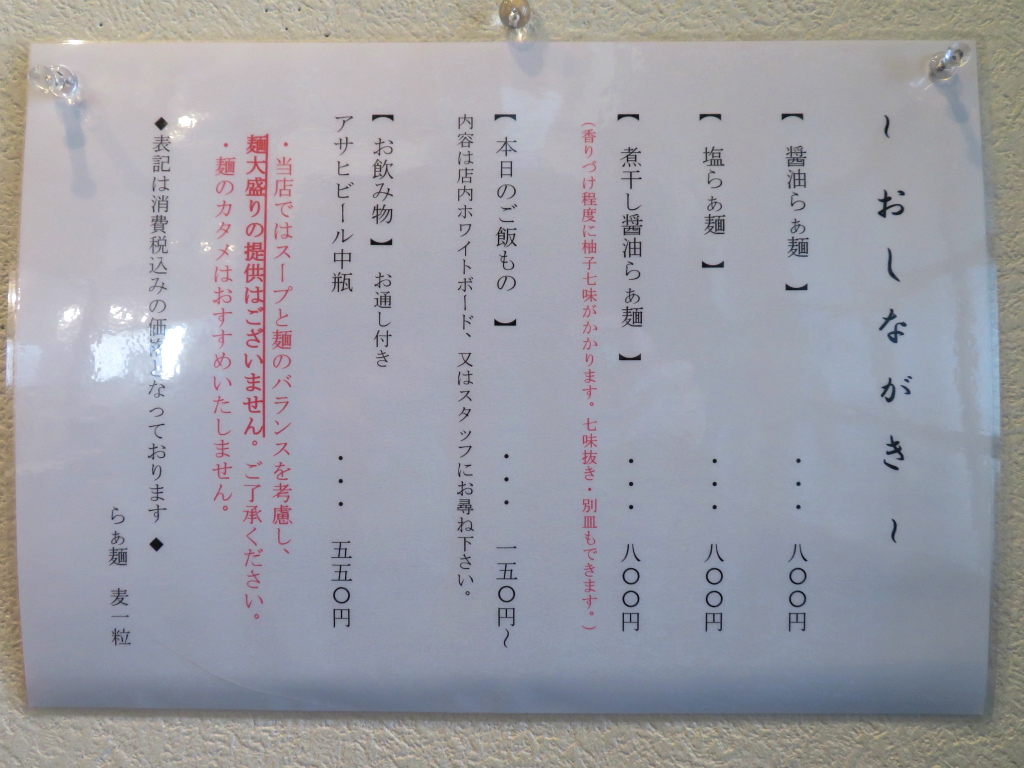 ~ おしながき ~
【 醤油らぁ麺 】 ・・・ 八〇〇円
【 塩らぁ麺 】 ・・・ 八〇〇円
【 煮干し醤油らぁ麺 】 ・・・ 八〇〇円
(香りづけ程度に柚子七味がかかります。七味抜き・別皿もできます。)
【 本日のご飯もの 】 ・・・ 一五〇円~
内容は店内ホワイトボード、又はスタッフにお尋ね下さい。
【 お飲み物 】 お通し付き
アサヒビール中瓶 ・・・ 五五〇円
・当店ではスープと麺のバランスを考慮し、
麺大盛りの提供はございません。ご了承ください。
・麺のカタメはおすすめいたしません。
◆表記は消費税込みの価格となっております ◆
らぁ麺 麦一粒